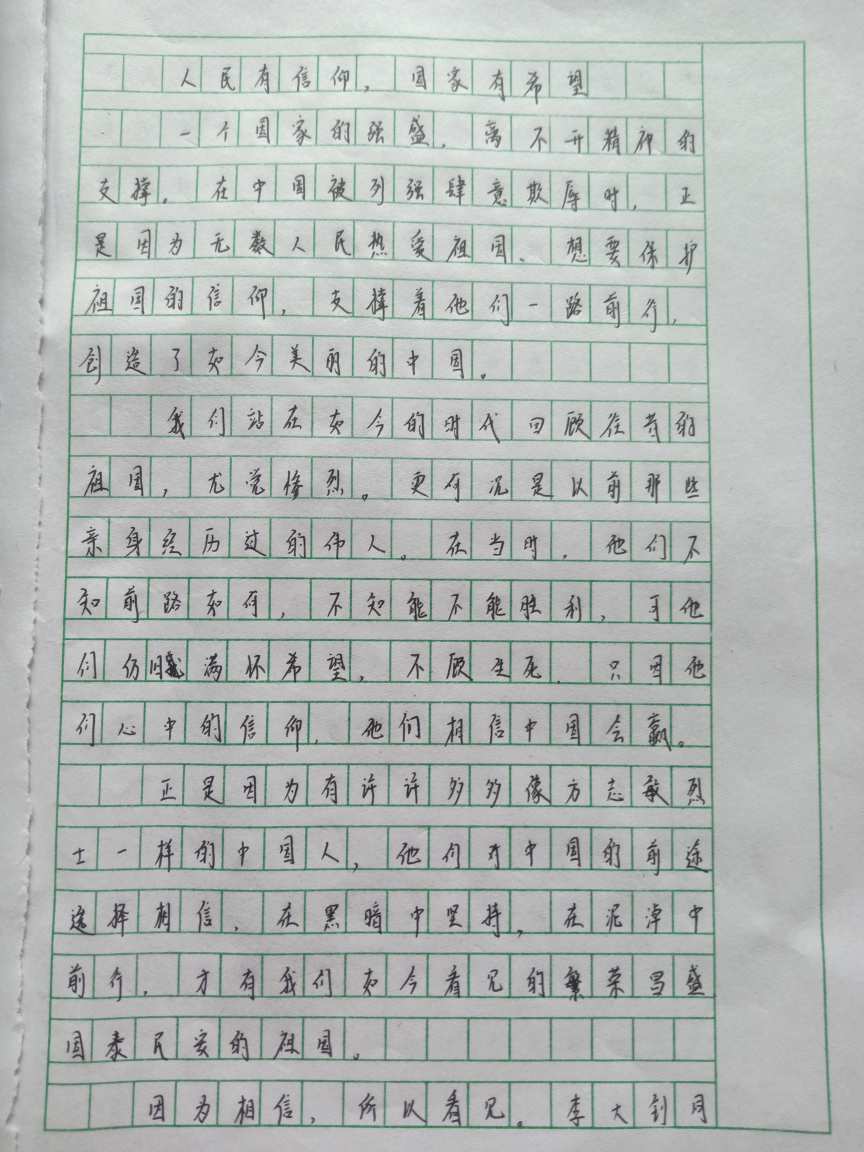 人民有信仰，国家有希望
一个国家的强盛，离不开精神的
支撑。在中国被列强肆意欺辱时，正
是因为无数人民热爱祖国、想要保护
祖国的信仰，支撑着他们一路前行，
创造了如今美丽的中国。
我们站在如今的时代回顾往昔的
祖国，尤觉惨烈。更何况是以前那些
亲身经历过的伟人。在当时，他们不
知前路如何，不知能不能胜利，可他
们仍旧满怀希望，不顾生死，只因他
们心中的信仰，他们相信中国会赢。
正是因为有许许多多像方志敏烈
士一样的中国人，他们对中国的前途
选择相信，在黑暗中坚持，在泥淖中
前行，才有我们如今看见的繁荣昌盛
国泰民安的祖国。
因为相信，所以看见。李大钊同